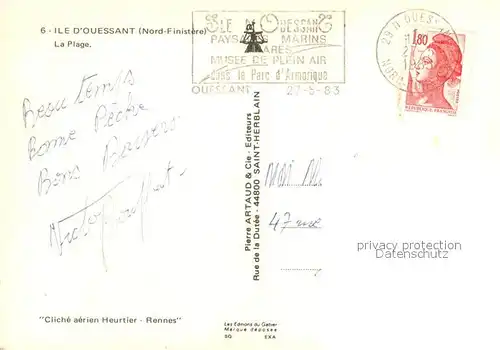 6 - ILE D'OUESSANT (Nord-Finistère)
La Plage.
ILE D'OUESSANT
PAYSAGES MARINS
PHARES
MUSEE DE PLEIN AIR
dans le Parc d'Armorique
OUESSANT 27-5-83
29 N OUESSANT
1,80
Beau temps
Bonne Pêche
Bons Baisers
Pierre ARTAUD & Cie - Editeurs
Rue de la Dutée - 44800 SAINT-HERBLAIN
47 rue
privacy protection
DatenSchutz
"Cliché aérien Heurtier - Rennes"
Les Editions du Gabier
Marque déposée
SQ EXA